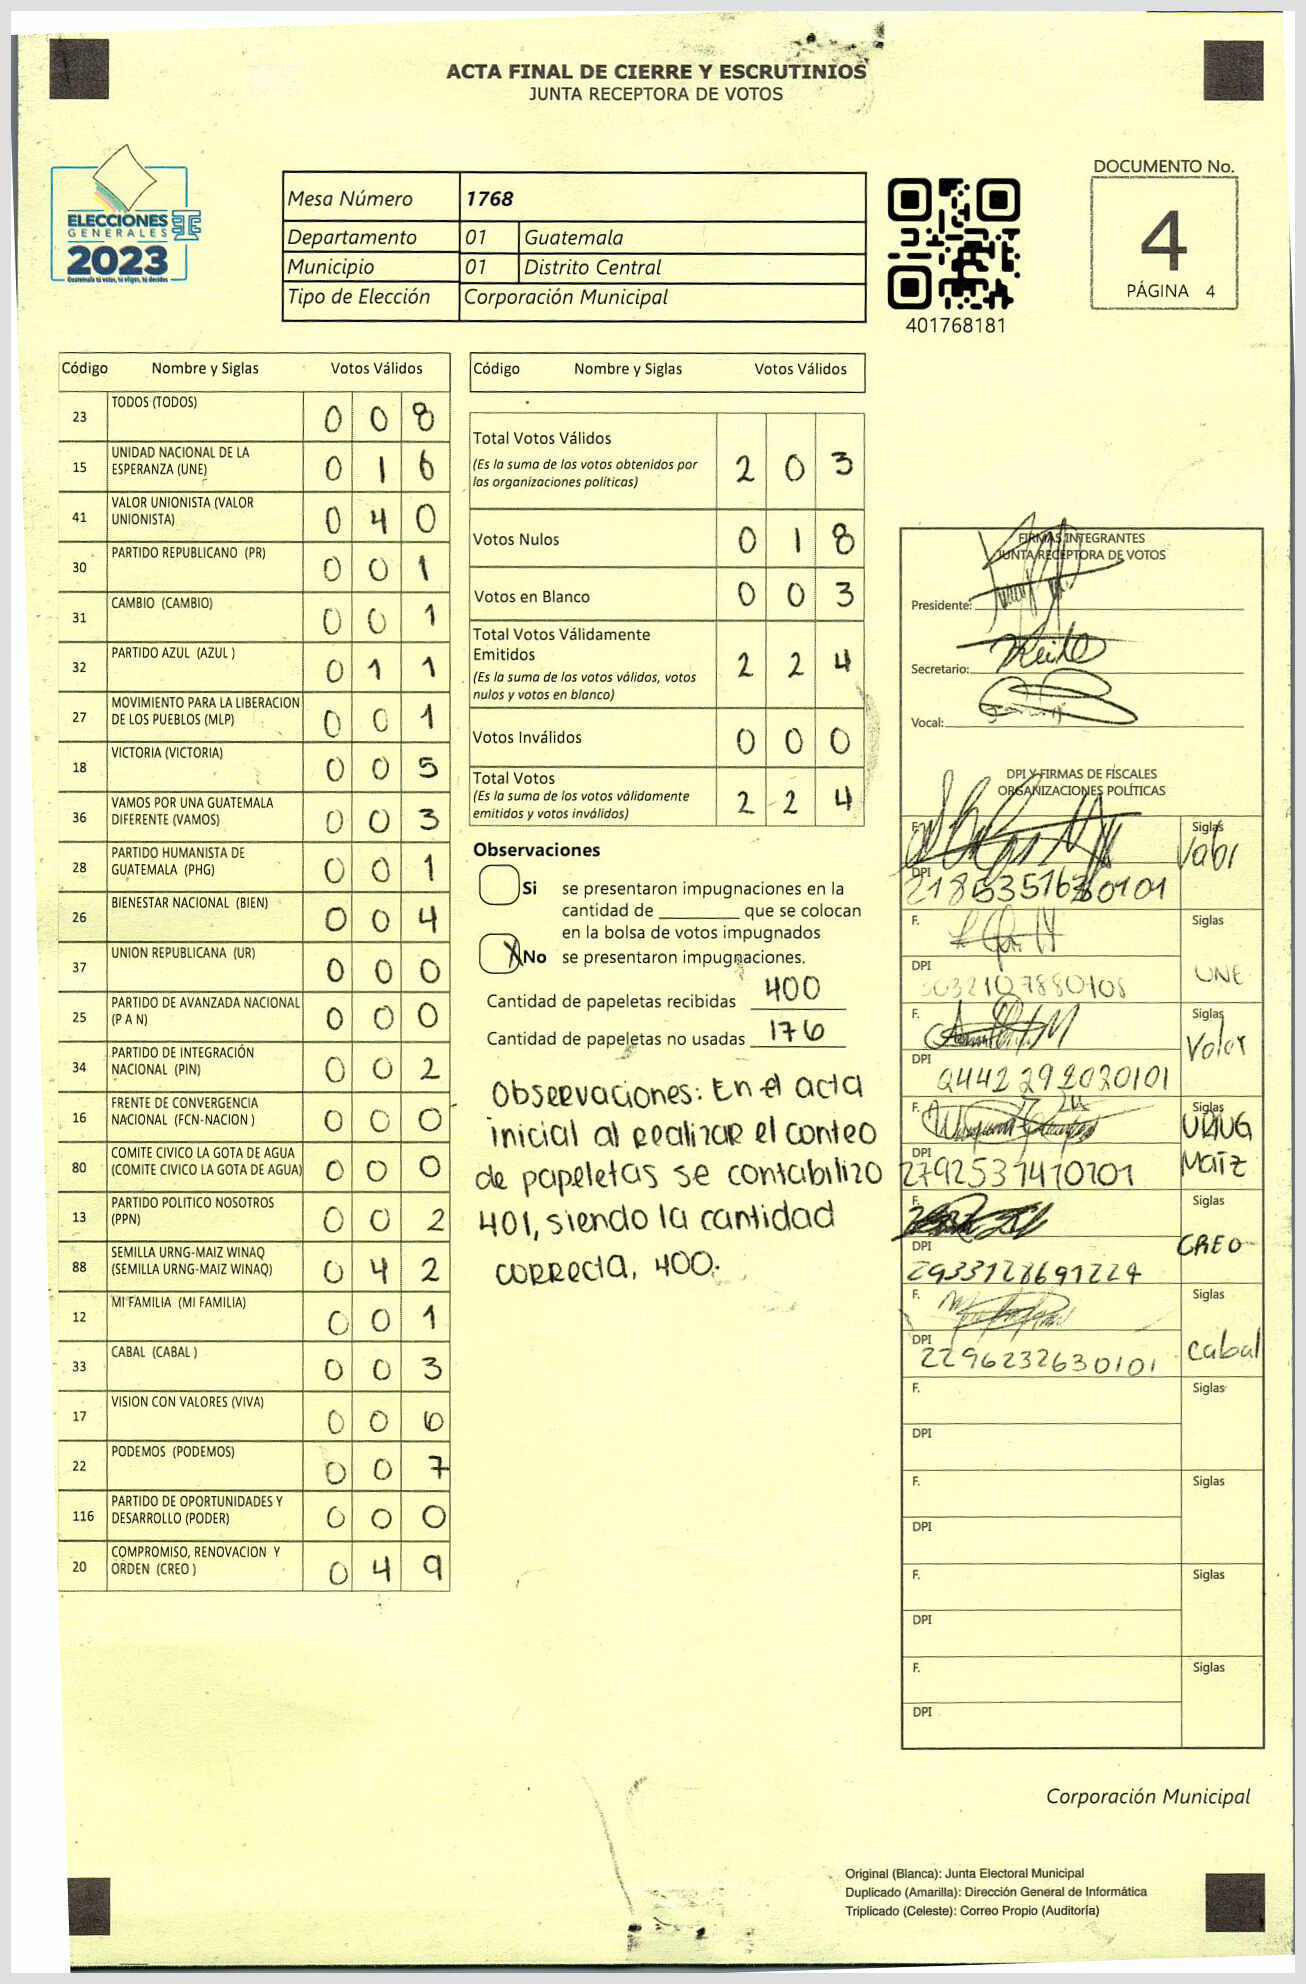 ACTA FINAL DE CIERRE Y ESCRUTINIOS
JUNTA RECEPTORA DE VOTOS
ELECCIONES
GENERALES
2023
Guatemala tú votas, tú eliges, tú decides
Mesa Número 1768
Departamento 01 Guatemala
Municipio 01 Distrito Central
Tipo de Elección Corporación Municipal
401768181
DOCUMENTO No.
4
PÁGINA 4
Código Nombre y Siglas Votos Válidos
23 TODOS (TODOS) 0 0 8
15 UNIDAD NACIONAL DE LA ESPERANZA (UNE) 0 1 6
41 VALOR UNIONISTA (VALOR UNIONISTA) 0 4 0
30 PARTIDO REPUBLICANO (PR) 0 0 1
31 CAMBIO (CAMBIO) 0 0 1
32 PARTIDO AZUL (AZUL ) 0 1 1
27 MOVIMIENTO PARA LA LIBERACION DE LOS PUEBLOS (MLP) 0 0 1
18 VICTORIA (VICTORIA) 0 0 5
36 VAMOS POR UNA GUATEMALA DIFERENTE (VAMOS) 0 0 3
28 PARTIDO HUMANISTA DE GUATEMALA (PHG) 0 0 1
26 BIENESTAR NACIONAL (BIEN) 0 0 4
37 UNION REPUBLICANA (UR) 0 0 0
25 PARTIDO DE AVANZADA NACIONAL (P A N) 0 0 0
34 PARTIDO DE INTEGRACIÓN NACIONAL (PIN) 0 0 2
16 FRENTE DE CONVERGENCIA NACIONAL (FCN-NACION ) 0 0 0
80 COMITE CIVICO LA GOTA DE AGUA (COMITE CIVICO LA GOTA DE AGUA) 0 0 0
13 PARTIDO POLITICO NOSOTROS (PPN) 0 0 2
88 SEMILLA URNG-MAIZ WINAQ (SEMILLA URNG-MAIZ WINAQ) 0 4 2
12 MI FAMILIA (MI FAMILIA) 0 0 1
33 CABAL (CABAL ) 0 0 3
17 VISION CON VALORES (VIVA) 0 0 6
22 PODEMOS (PODEMOS) 0 0 7
116 PARTIDO DE OPORTUNIDADES Y DESARROLLO (PODER) 0 0 0
20 COMPROMISO, RENOVACION Y ORDEN (CREO ) 0 4 9
Código Nombre y Siglas Votos Válidos
Total Votos Válidos 2 0 3
(Es la suma de los votos obtenidos por
las organizaciones políticas)
Votos Nulos 0 1 8
Votos en Blanco 0 0 3
Total Votos Válidamente
Emitidos 2 2 4
(Es la suma de los votos válidos, votos
nulos y votos en blanco)
Votos Inválidos 0 0 0
Total Votos 2 2 4
(Es la suma de los votos válidamente
emitidos y votos inválidos)
Observaciones
Si se presentaron impugnaciones en la
cantidad de ________ que se colocan
en la bolsa de votos impugnados
X No se presentaron impugnaciones.
Cantidad de papeletas recibidas 400
Cantidad de papeletas no usadas 176
Observaciones: En el acta
inicial al realizar el conteo
de papeletas se contabilizo
401, siendo la cantidad
correcta, 400.
FIRMAS INTEGRANTES
JUNTA RECEPTORA DE VOTOS
Presidente:
Secretario:
Vocal:
DPI Y FIRMAS DE FISCALES
ORGANIZACIONES POLÍTICAS
F. Siglas
DPI
F. Siglas
DPI UNE
F. Siglas Valor
DPI 2442 292020101
F. Siglas
DPI 2792531410101 MAIZ
F. Siglas
DPI CREO
2933128691224
F. Siglas
DPI 2296232630101 Cabal
F. Siglas
DPI
F. Siglas
DPI
F. Siglas
DPI
F. Siglas
DPI
Corporación Municipal
Original (Blanca): Junta Electoral Municipal
Duplicado (Amarilla): Dirección General de Informática
Triplicado (Celeste): Correo Propio (Auditoría)